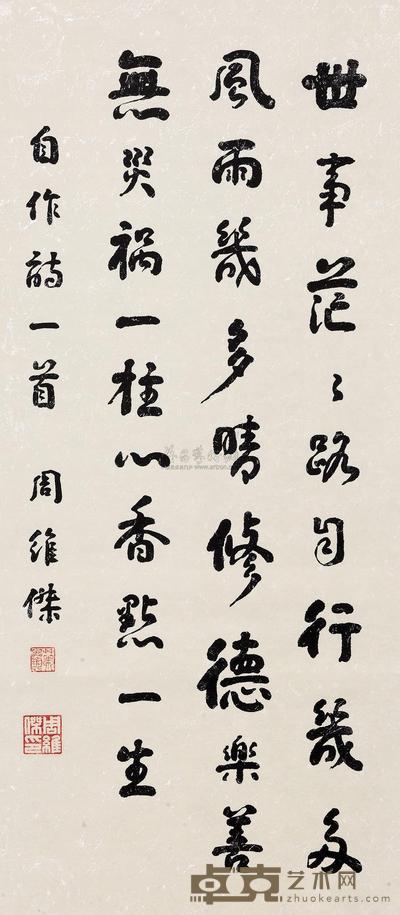 世事茫〻路自行幾多
風雨幾多晴修德樂善
無災禍一柱心香點一生
自作詩一首 周維傑
周維傑印
卓克艺术网
zhuokearts.com